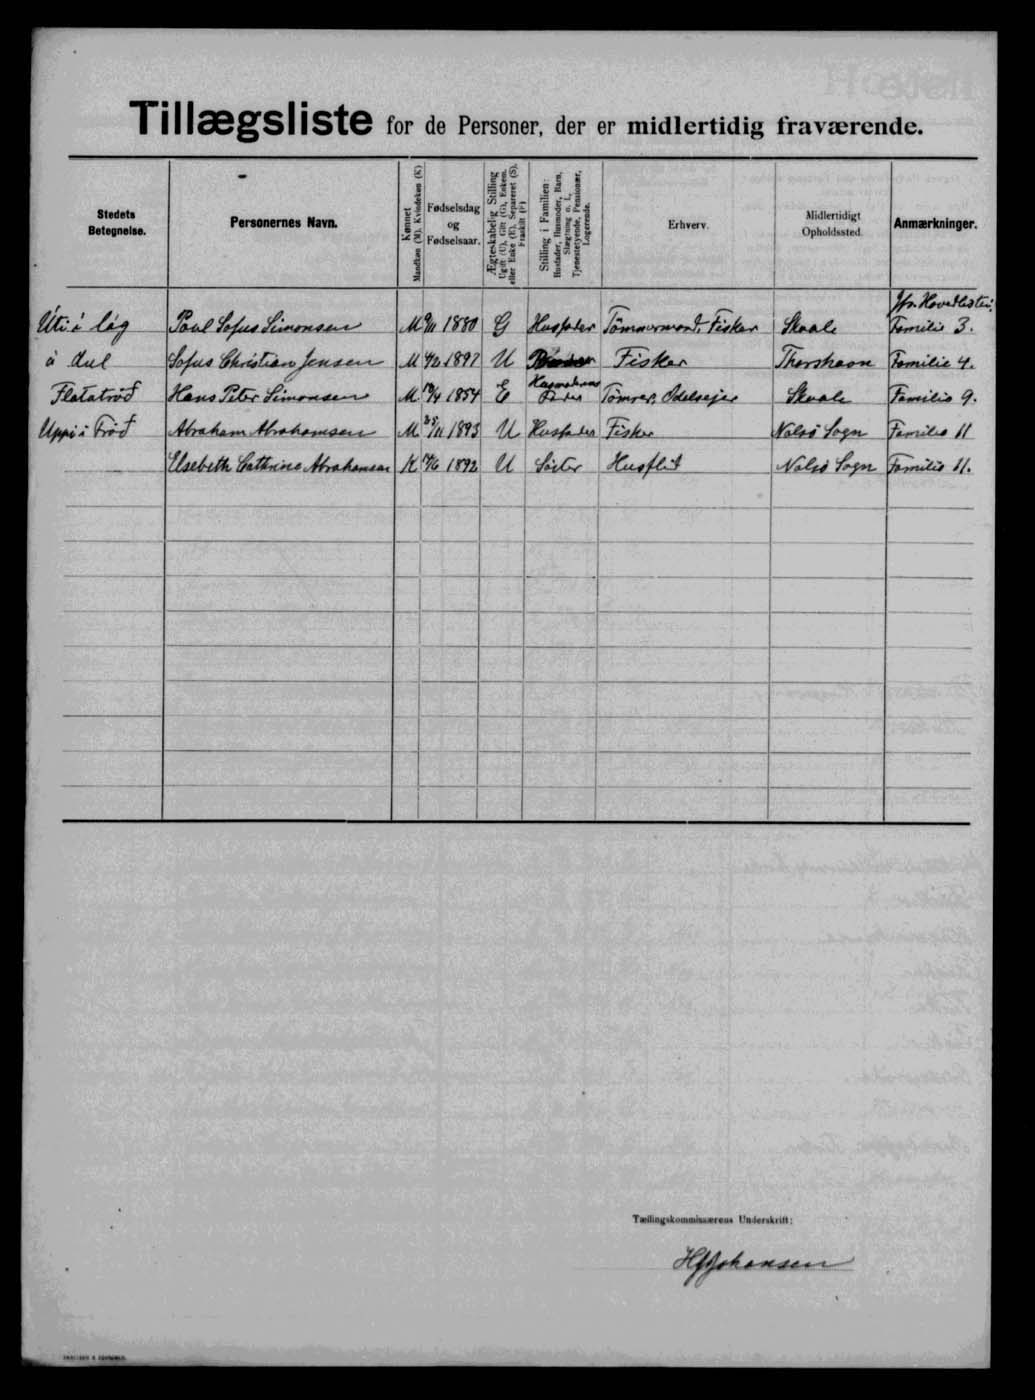 Tillægsliste for de Personer, der er midlertidig fraværende.
Stedets Betegnelse.
Personernes Navn.
Kønnet Mandkøn (M). Kvindekøn (K)
Fødselsdag og Fødselsaar.
Ægteskabelig Stilling Ugift (U), Gift (G), Enkem. eller Enke (E), Separeret (S), Fraskilt (F)
Stilling i Familien: Husfader, Husmoder, Barn, Slægtning o. l., Tjenestetyende, Pensionær, Logerende.
Erhverv.
Midlertidigt Opholdssted.
Anmærkninger.
Jfr. Hovedlisten:
Uti á låg Poul Sofus Simonsen M 9/11 1880 G Husfader Tömmermand, Fisker Skaale Familie 3.
á dul Sofus Christian Jensen M 1897 U Fisker Thorshavn Familie 4.
Flatatröð Hans Peter Simonsen M 1854 E Husmoderens Fader Tömrer, Odelsejer Skaale Familie 9.
Uppi i Tröð Abraham Abrahamsen M 25/11 1893 U Husfader Fisker Nolsö Sogn Familie 11
Elsebeth Cathrine Abrahamsen K 1892 U Söster Husflid Nolsö Sogn Familie 11.
Tællingskommissærens Underskrift:
HJohansen